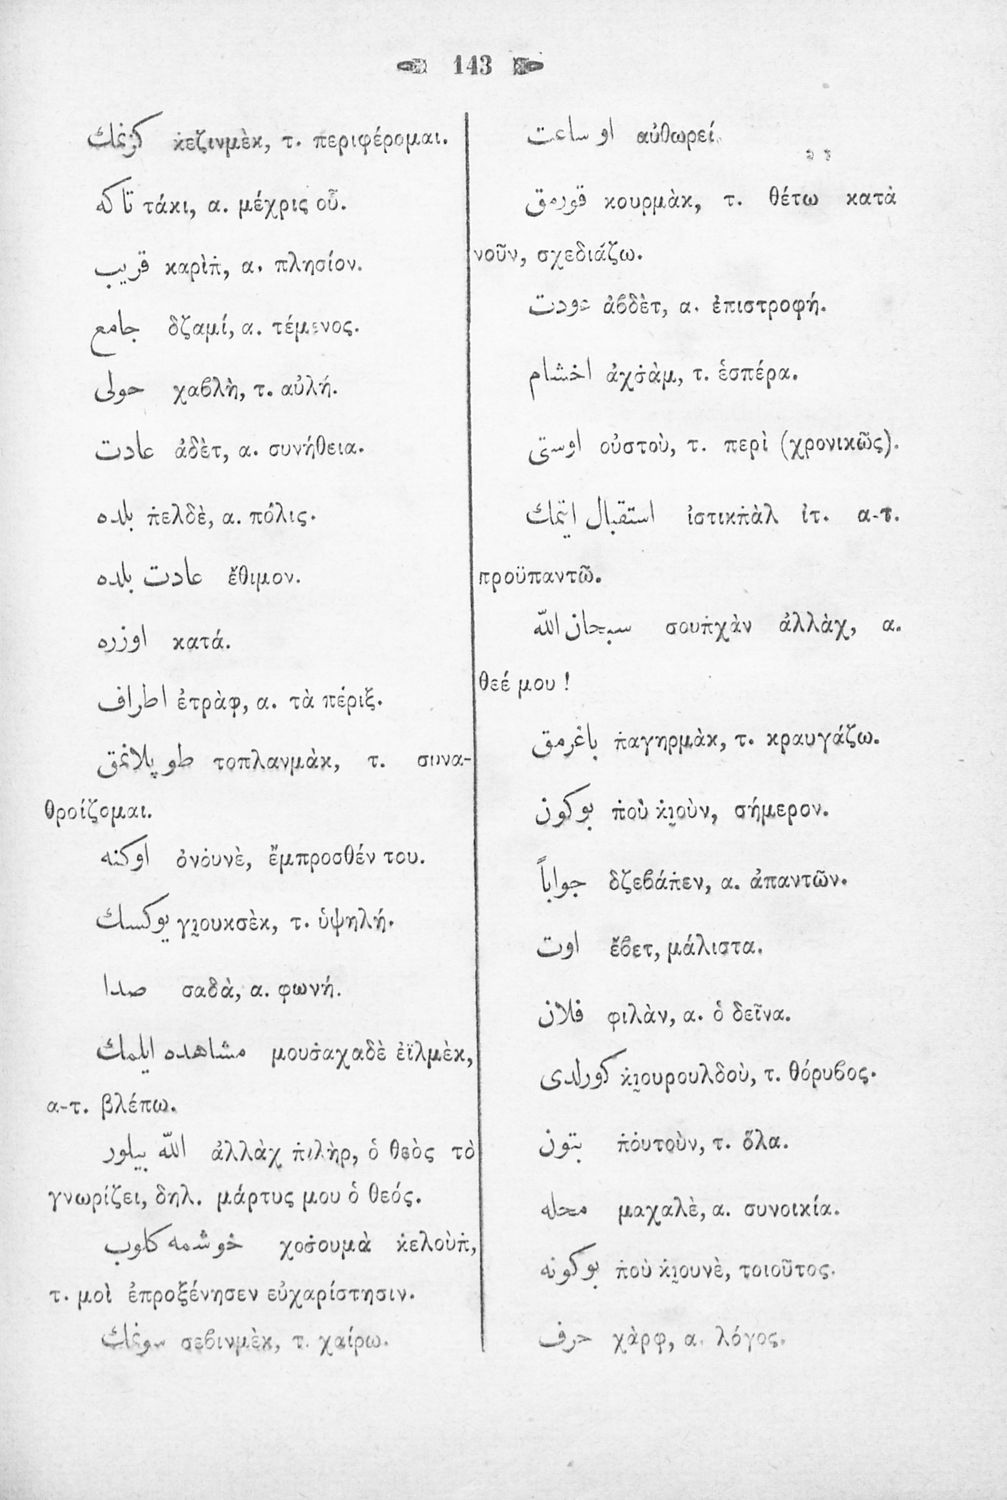 143
كزنمك κ̇εζινμὲκ, τ. περιφέρομαι.
تا كه τάκι, α. μέχρις οὗ.
قريب καρὶπ̇, α. πλησίον.
جامع δζαμί, α. τέμενος.
حولى χαβλὴ, τ. αὐλή.
عادت ἀδὲτ, α. συνήθεια.
بلده π̇ελδὲ, α. πόλις.
عادت بلده ἔθιμον.
اوزره κατά.
اطراف ἐτρὰφ, α. τὰ πέριξ.
طوپلانمق τοπλανμὰκ, τ. συνα-
θροίζομαι.
اوكنه ὀνὀυνὲ, ἔμπροσθέν του.
يوكسك γι̯ουκσὲκ, τ. ὑψηλή.
صدا σαδὰ, α. φωνή.
مشاهده ايلمك μουσ̇αχαδὲ ἐϊλμὲκ,
α-τ. βλέπω.
الله بيلور ἀλλὰχ π̇ιλὴρ, ὁ θεὸς τὸ
γνωρίζει, δηλ. μάρτυς μου ὁ θεός.
خوشمه كلوب χοσ̇ουμὰ κ̇ελοὺπ̇,
τ. μοὶ ἐπροξένησεν εὐχαρίστησιν.
سونمك σεβινμὲκ, τ. χαίρω.
او ساعت αὐθωρεί.
قورمق κουρμὰκ, τ. θέτω κατὰ
νοῦν, σχεδιάζω.
عودت ἀβδὲτ, α. ἐπιστροφή.
اخشام ἀχσ̇ὰμ, τ. ἑσπέρα.
اوستى οὐστοὺ, τ. περὶ (χρονικῶς).
استقبال ايتمك ἰστικπ̇ὰλ ἰτ. α-τ.
προϋπαντῶ.
سبحان الله σουπ̇χὰν ἀλλὰχ, α.
θεέ μου !
باغرمق π̇αγηρμὰκ, τ. κραυγάζω.
بوكون π̇οὺ κ̇ι̯οὺν, σήμερον.
جواباً δζεβάπ̇εν, α. ἀπαντῶν.
اوت ἔβετ, μάλιστα.
فلان φιλὰν, α. ὁ δεῖνα.
كورلدى κ̇ι̯ουρουλδοὺ, τ. θόρυβος.
بتون π̇ὀυτοὺν, τ. ὅλα.
محله μαχαλὲ, α. συνοικία.
بوكونه π̇οὺ κ̇ι̯ουνὲ, τοιοῦτος.
حرف χὰρφ, α. λόγος.